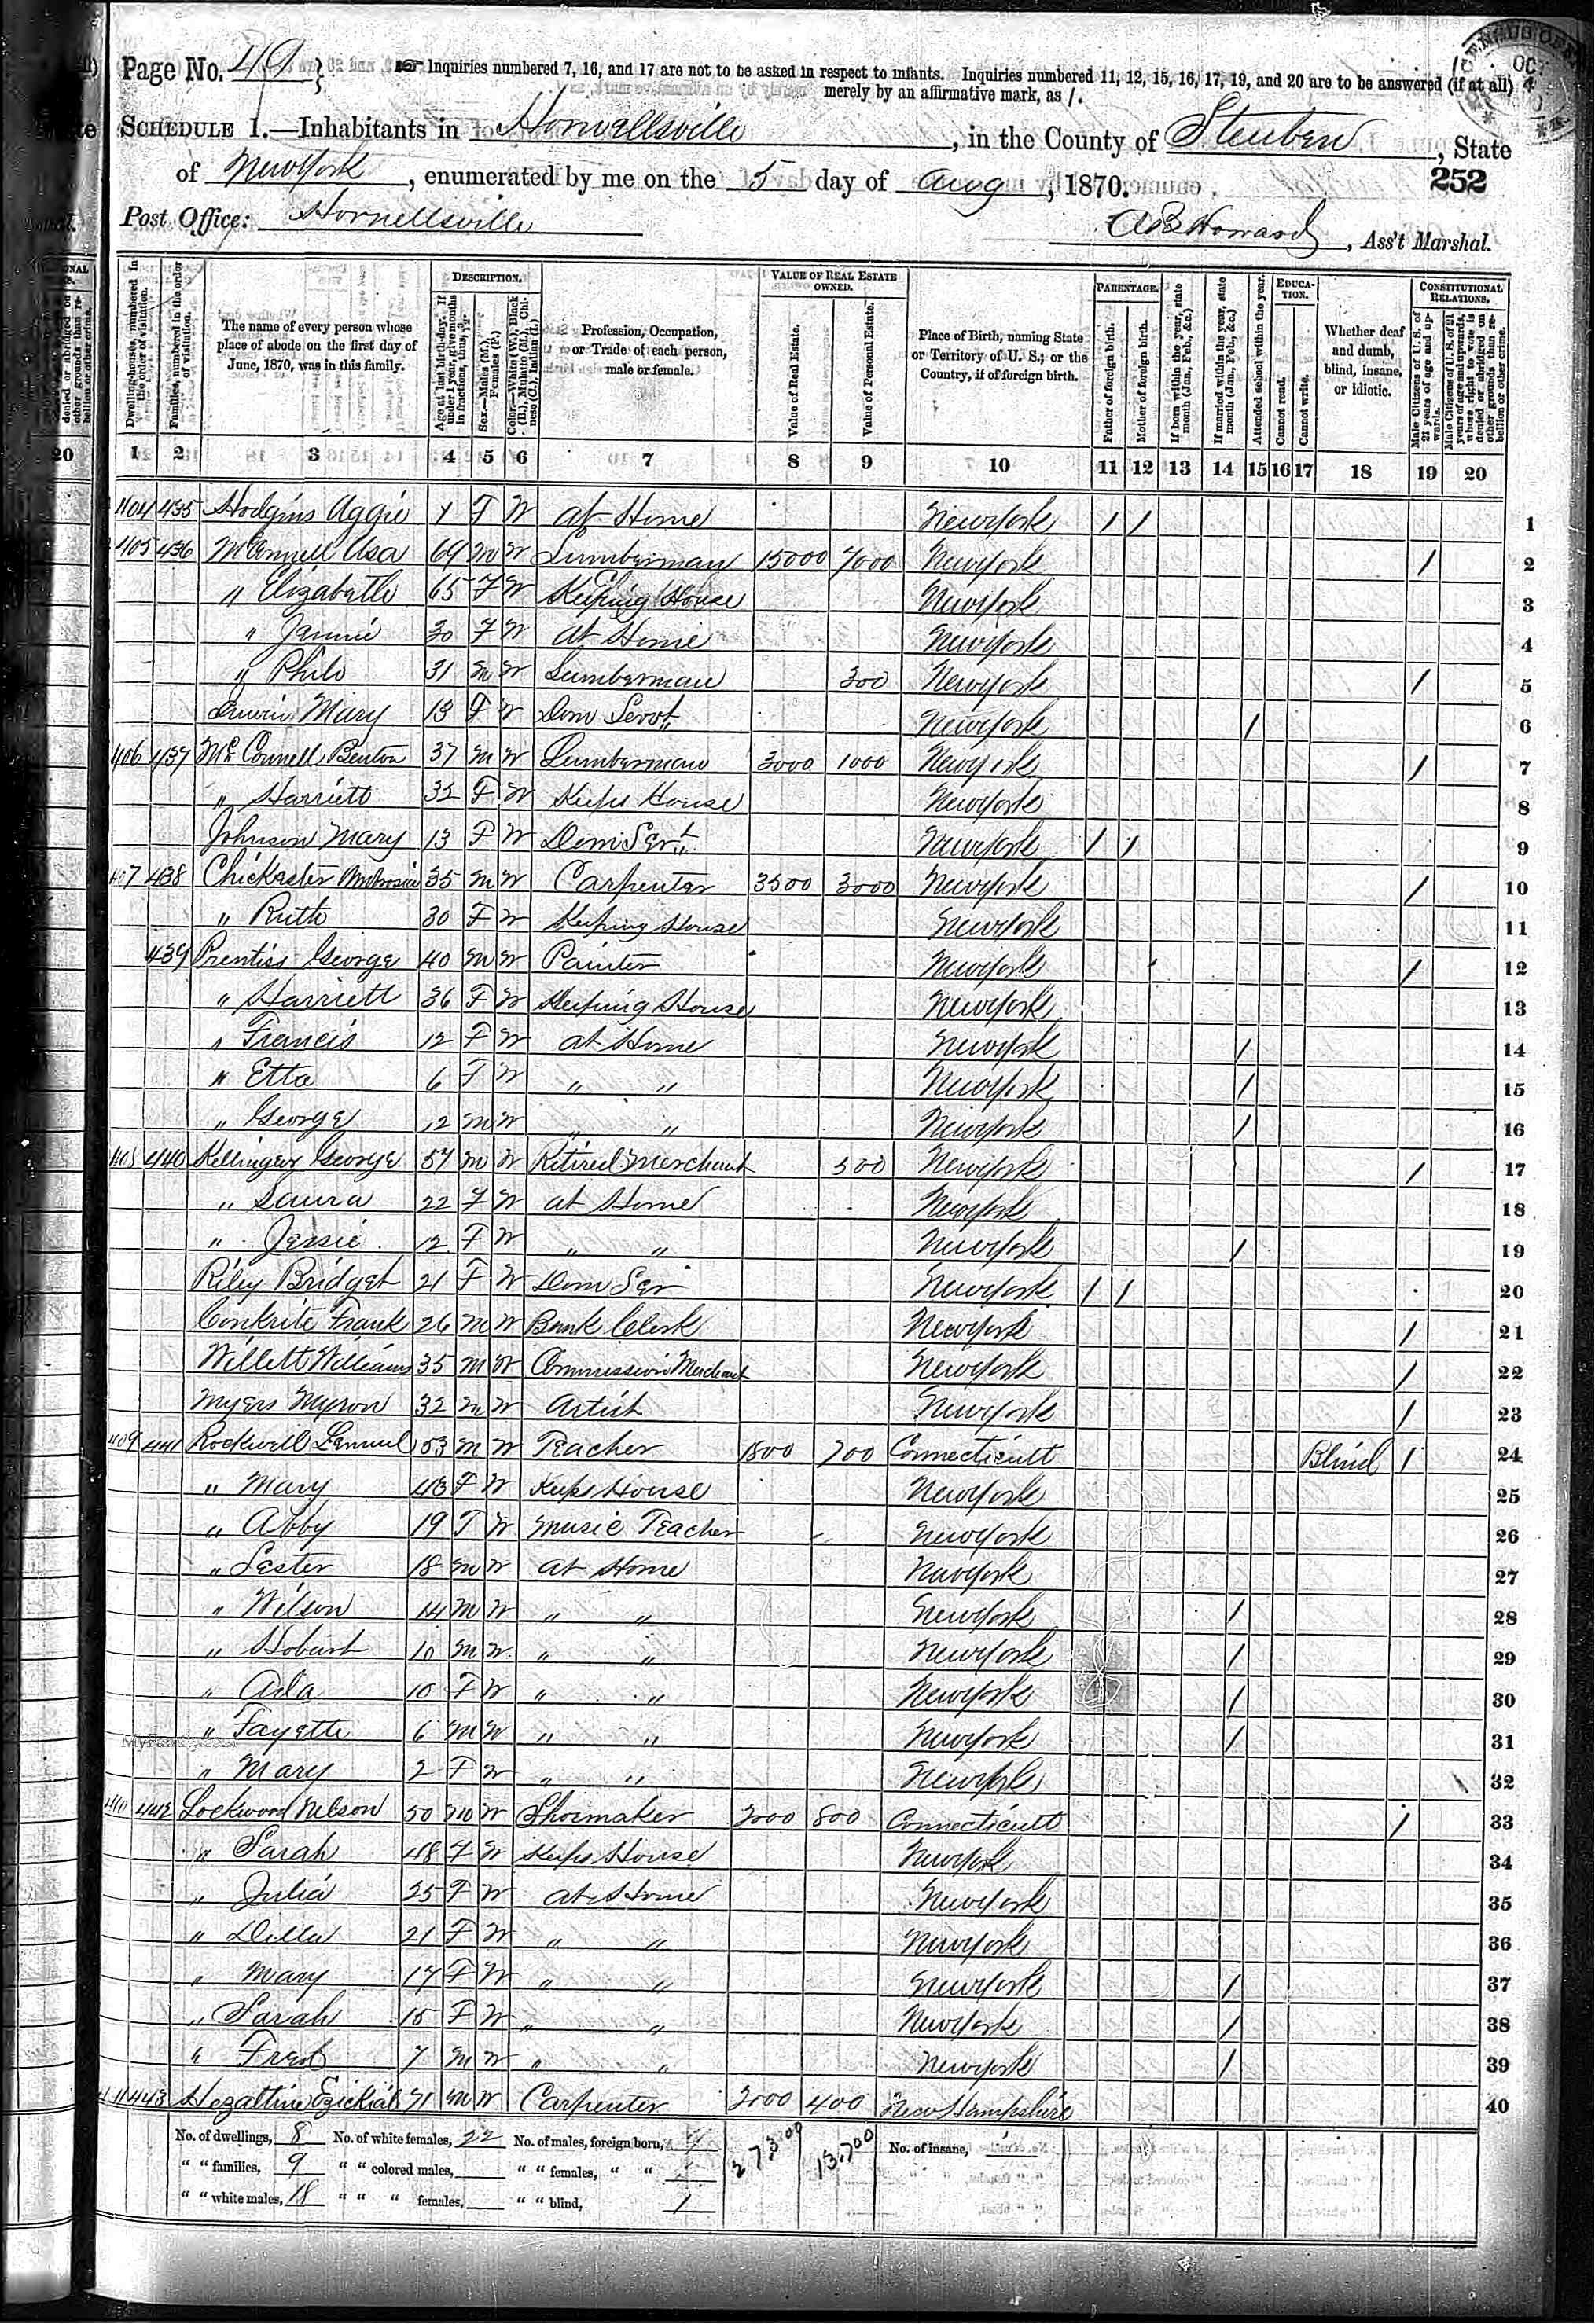 Page No. 49 } Inquiries numbered 7, 16, and 17 are not to be asked in respect to infants. Inquiries numbered 11, 12, 15, 16, 17, 19, and 20 are to be answered (if at all)
merely by an affirmative mark, as /.
SCHEDULE 1.—Inhabitants in Hornellsville, in the County of Steuben, State
of New York, enumerated by me on the 5 day of Aug, 1870.
252
Post Office: Hornellsville
A B Howard, Ass't Marshal.
Dwelling-houses, numbered in the order of visitation.
Families, numbered in the order of visitation.
The name of every person whose place of abode on the first day of June, 1870, was in this family.
DESCRIPTION.
Age at last birth-day. If under 1 year, give months in fractions, thus, 3/12.
Sex.—Males (M.), Females (F.)
Color.—White (W.), Black (B.), Mulatto (M.), Chinese (C.), Indian (I.)
Profession, Occupation, or Trade of each person, male or female.
VALUE OF REAL ESTATE OWNED.
Value of Real Estate.
Value of Personal Estate.
Place of Birth, naming State or Territory of U. S.; or the Country, if of foreign birth.
PARENTAGE.
Father of foreign birth.
Mother of foreign birth.
If born within the year, state month (Jan., Feb., &c.)
If married within the year, state month (Jan., Feb., &c.)
Attended school within the year.
EDUCATION.
Cannot read.
Cannot write.
Whether deaf and dumb, blind, insane, or idiotic.
CONSTITUTIONAL RELATIONS.
Male Citizens of U. S. of 21 years of age and upwards.
Male Citizens of U. S. of 21 years of age and upwards, whose right to vote is denied or abridged on other grounds than rebellion or other crime.
20 1 2 3 4 5 6 7 8 9 10 11 12 13 14 15 16 17 18 19 20
404 435 Hodgins Aggie F W at Home New York / / 1
405 436 McConnell Asa 69 M W Lumberman 15000 7000 New York / 2
" Elizabeth 65 F W Keeping House New York 3
" Jennie 30 F W at Home New York 4
" Philo 31 M W Lumberman 300 New York / 5
Mary 13 F W Dom Servt New York / 6
406 437 McConnell Benton 37 M W Lumberman 3000 1000 New York / 7
" Harriett 32 F W Keeps House New York 8
Johnson Mary 13 F W Dom Sert New York / / 9
407 438 35 M W Carpenter 3500 3000 New York / 10
" Ruth 30 F W Keeping House New York 11
439 Prentiss George 40 M W Painter New York / 12
" Harriett 36 F W Keeping House New York 13
" Francis 12 F W at Home New York / 14
" Etta 6 F W " " New York / 15
" George 12 M W " " New York / 16
408 440 Kellinger George 57 M W Retired Merchant 500 New York / 17
" Laura 22 F W at Home New York 18
" Jessie 12 F W " " New York / 19
Riley Bridget 21 F W Dom Ser New York / / 20
Conkrite Frank 26 M W Bank Clerk New York / 21
Willett Williams 35 M W Commission Merchant New York / 22
Myers Myron 32 M W Artist New York / 23
409 441 Rockwell Lemuel 53 M W Teacher 1800 700 Connecticutt Blind / 24
" Mary 43 F W Keeps House New York 25
" Abby 19 F W Music Teacher New York 26
" Lester 18 M W at Home New York 27
" Wilson 14 M W " " New York / 28
" Hobart 10 M W " " New York / 29
" Ada 10 F W " " New York / 30
" Fayette 6 M W " " New York / 31
" Mary 2 F W " " New York 32
410 442 Lockwood Nelson 50 M W Shoemaker 2000 800 Connecticutt / 33
" Sarah 48 F W Keeps House New York 34
" Julia 25 F W at Home New York 35
" Della 21 F W " " New York 36
" Mary 17 F W " " New York / 37
" Sarah 15 F W " " New York / 38
" Fred 7 M W " " New York / 39
411 443 Hezaltine Ezickial 71 M W Carpenter 2000 400 New Hampshire 40
No. of dwellings, 8 No. of white females, 22 No. of males, foreign born, 27,300 13,700 No. of insane,
" " families, 9 " " colored males, " " females, " "
" " white males, 18 " " " females, " " blind, 1